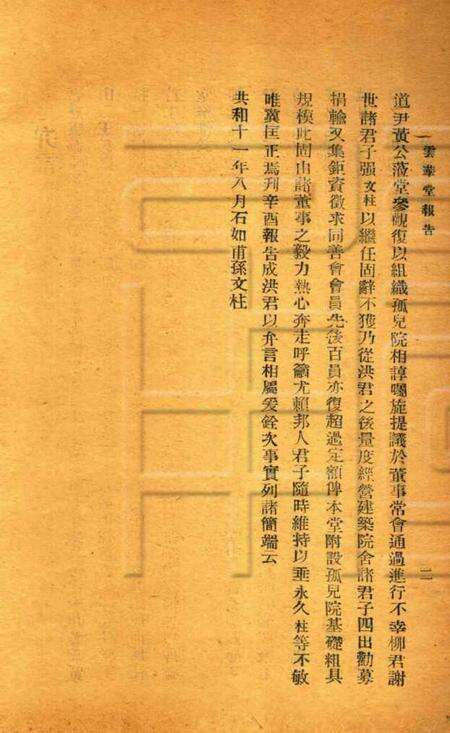 雲華堂報告
二
道尹黃公蒞堂參觀復以組織孤兒院相諄囑旋提議於董事常會通過進行不幸柳君謝
世諸君子强文柱以繼任固辭不獲乃從洪君之後量度經營建築院舍諸君子四出勸募
捐輸又集鉅資徵求同善會會員先後百員亦復超過定額俾本堂附設孤兒院基礎粗具
規模此固由諸董事之毅力熱心奔走呼籲尤賴邦人君子隨時維持以垂永久柱等不敏
唯冀匡正焉刋辛酉報告成洪君以弁言相屬爰銓次事實列諸簡端云
共和十一年八月石如甫孫文柱